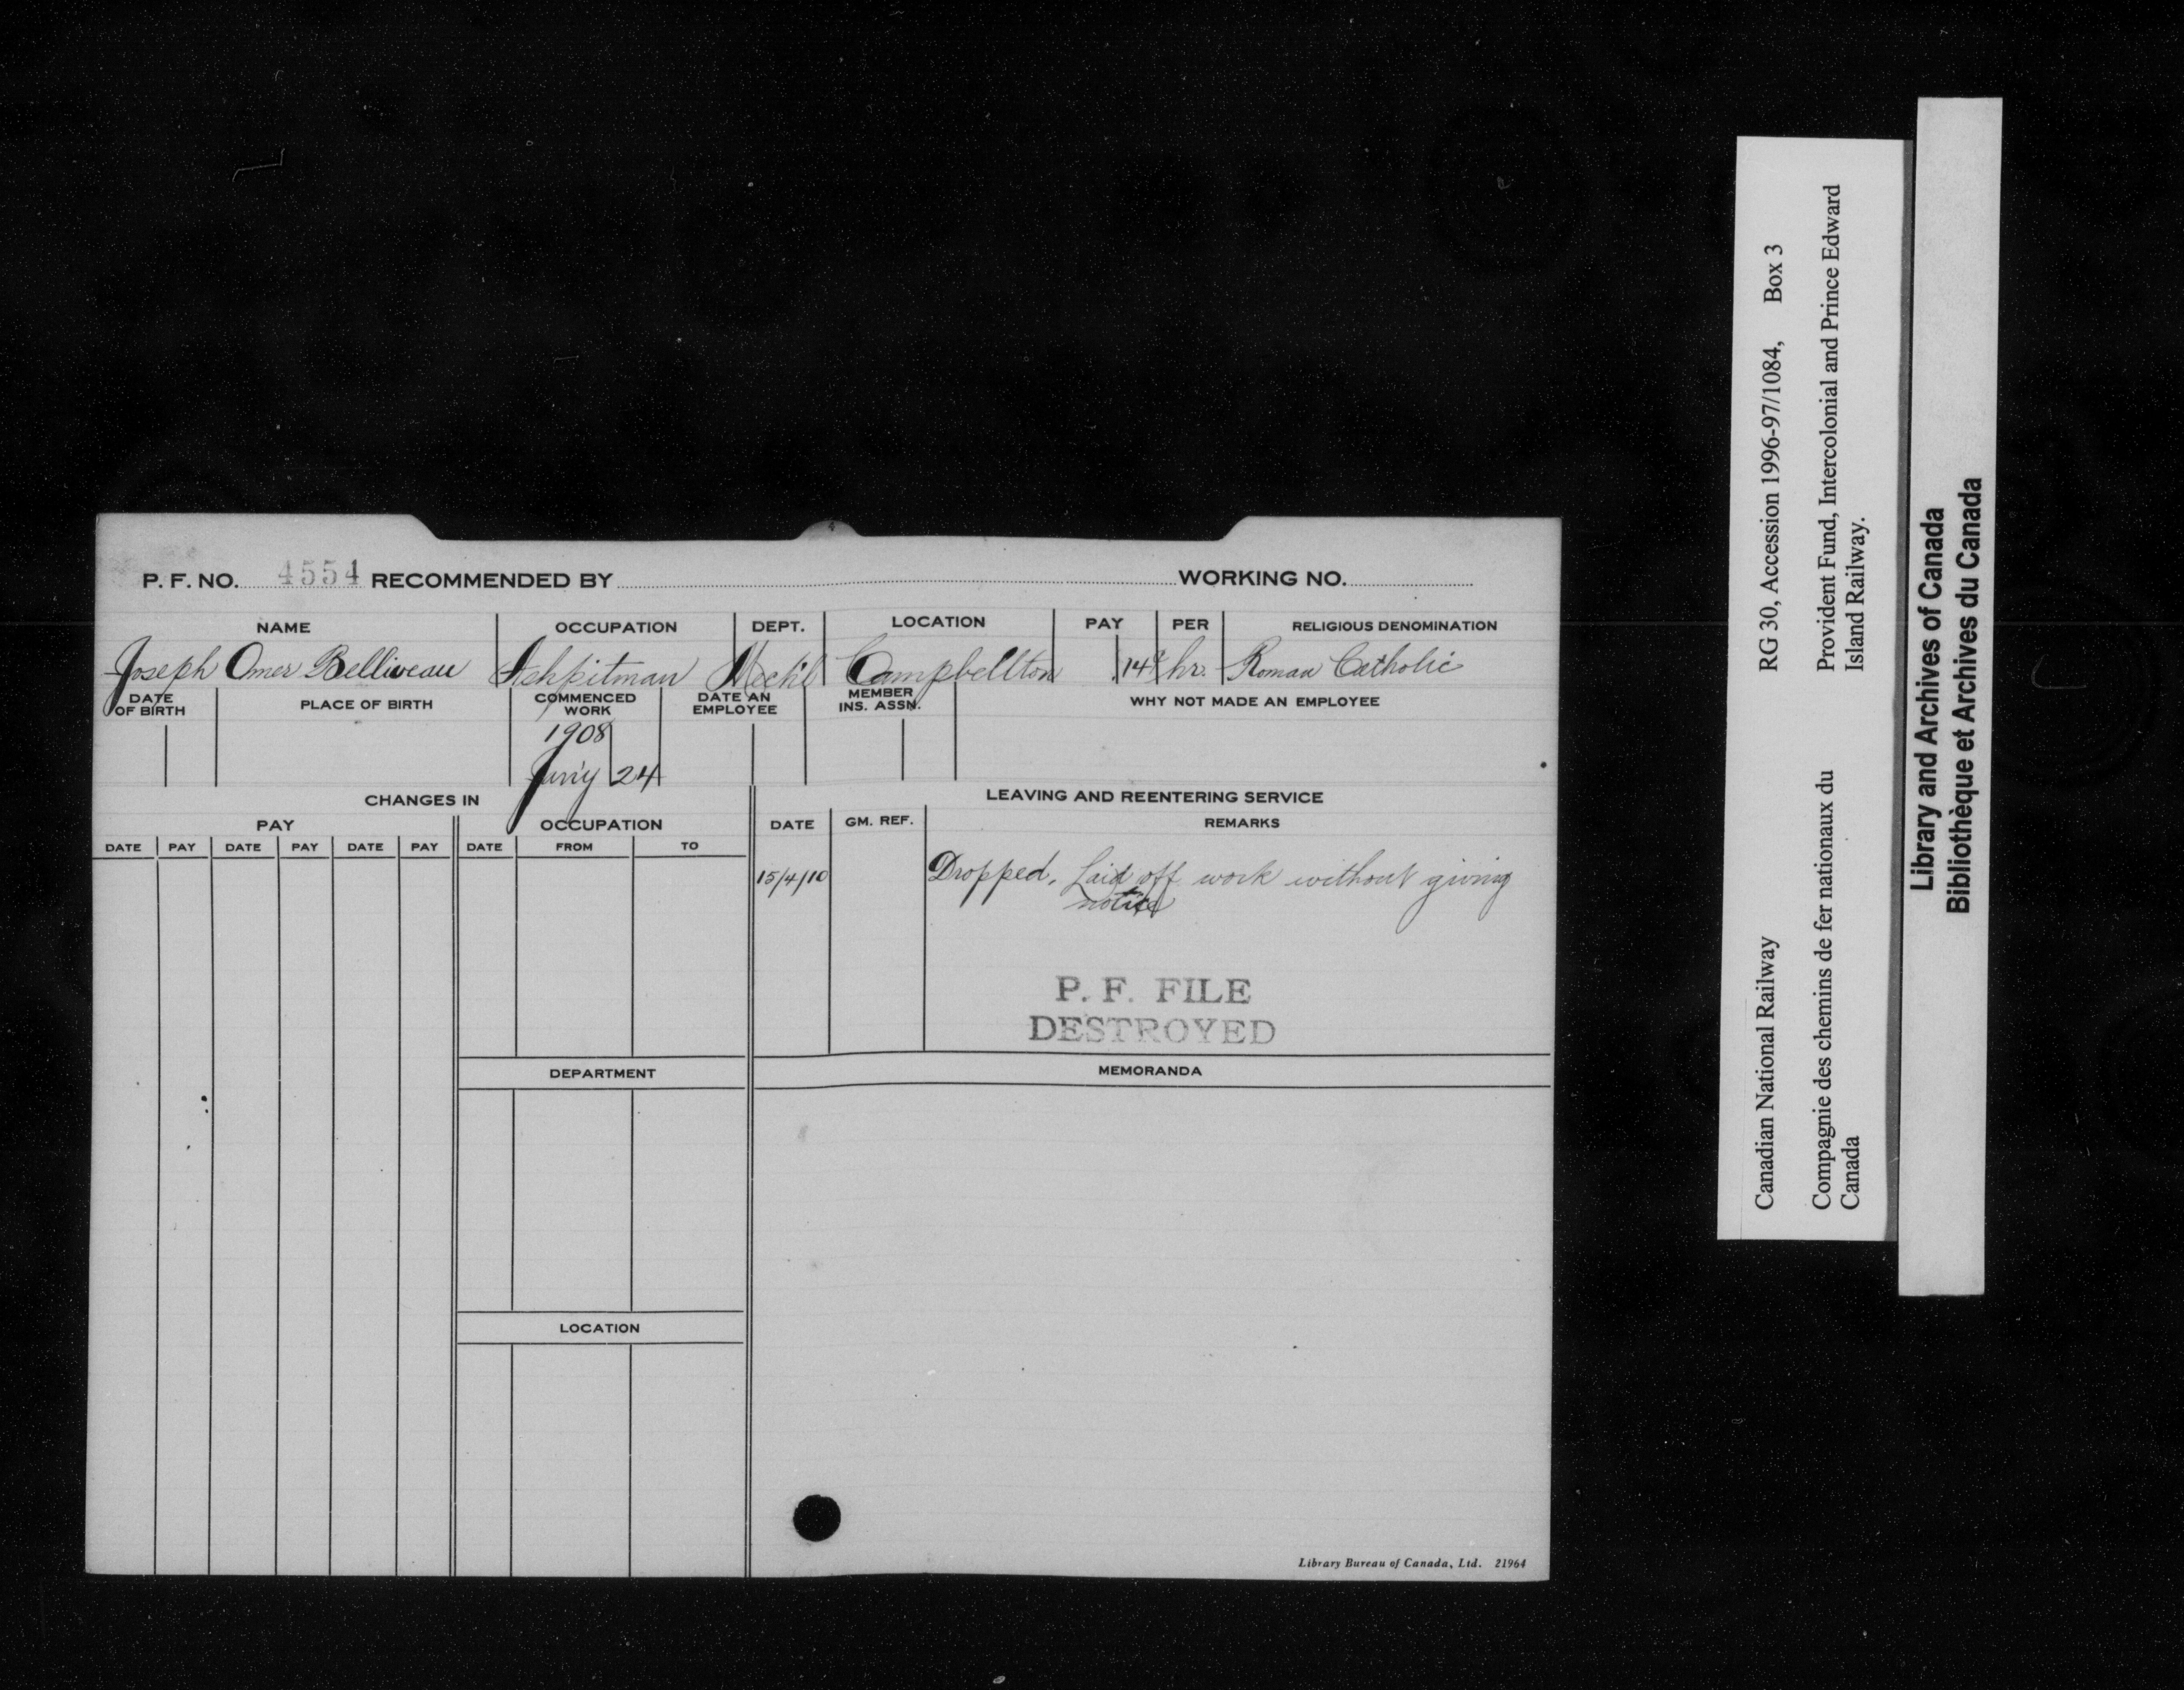 P. F. NO. 4554 RECOMMENDED BY WORKING NO.
NAME OCCUPATION DEPT. LOCATION PAY PER RELIGIOUS DENOMINATION
Joseph Omer Belliveau Ashpitman Mech'l Campbellton .14¢ hr. Roman Catholic
DATE OF BIRTH PLACE OF BIRTH COMMENCED WORK DATE AN EMPLOYEE MEMBER INS. ASSN. WHY NOT MADE AN EMPLOYEE
1908
24
CHANGES IN LEAVING AND REENTERING SERVICE
PAY OCCUPATION DATE GM. REF. REMARKS
DATE PAY DATE PAY DATE PAY DATE FROM TO
15/4/10 Dropped. Laid off work without giving
notice
P. F. FILE
DESTROYED
DEPARTMENT MEMORANDA
LOCATION
Library Bureau of Canada, Ltd. 21964
Canadian National Railway RG 30, Accession 1996-97/1084, Box 3
Compagnie des chemins de fer nationaux du Provident Fund, Intercolonial and Prince Edward
Canada Island Railway.
Library and Archives of Canada
Bibliothèque et Archives du Canada